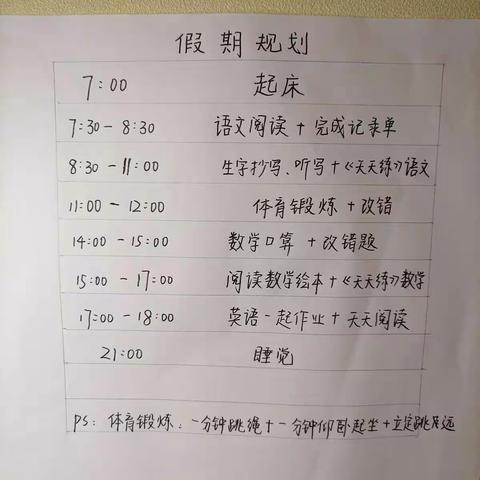 假期规划
7:00 起床
7:30-8:30 语文阅读+完成记录单
8:30-11:00 生字抄写、听写+《天天练》语文
11:00-12:00 体育锻炼+改错
14:00-15:00 数学口算+改错题
15:00-17:00 阅读数学绘本+《天天练》数学
17:00-18:00 英语一起作业+天天阅读
21:00 睡觉
PS: 体育锻炼:一分钟跳绳+一分钟仰卧起坐+立定跳远